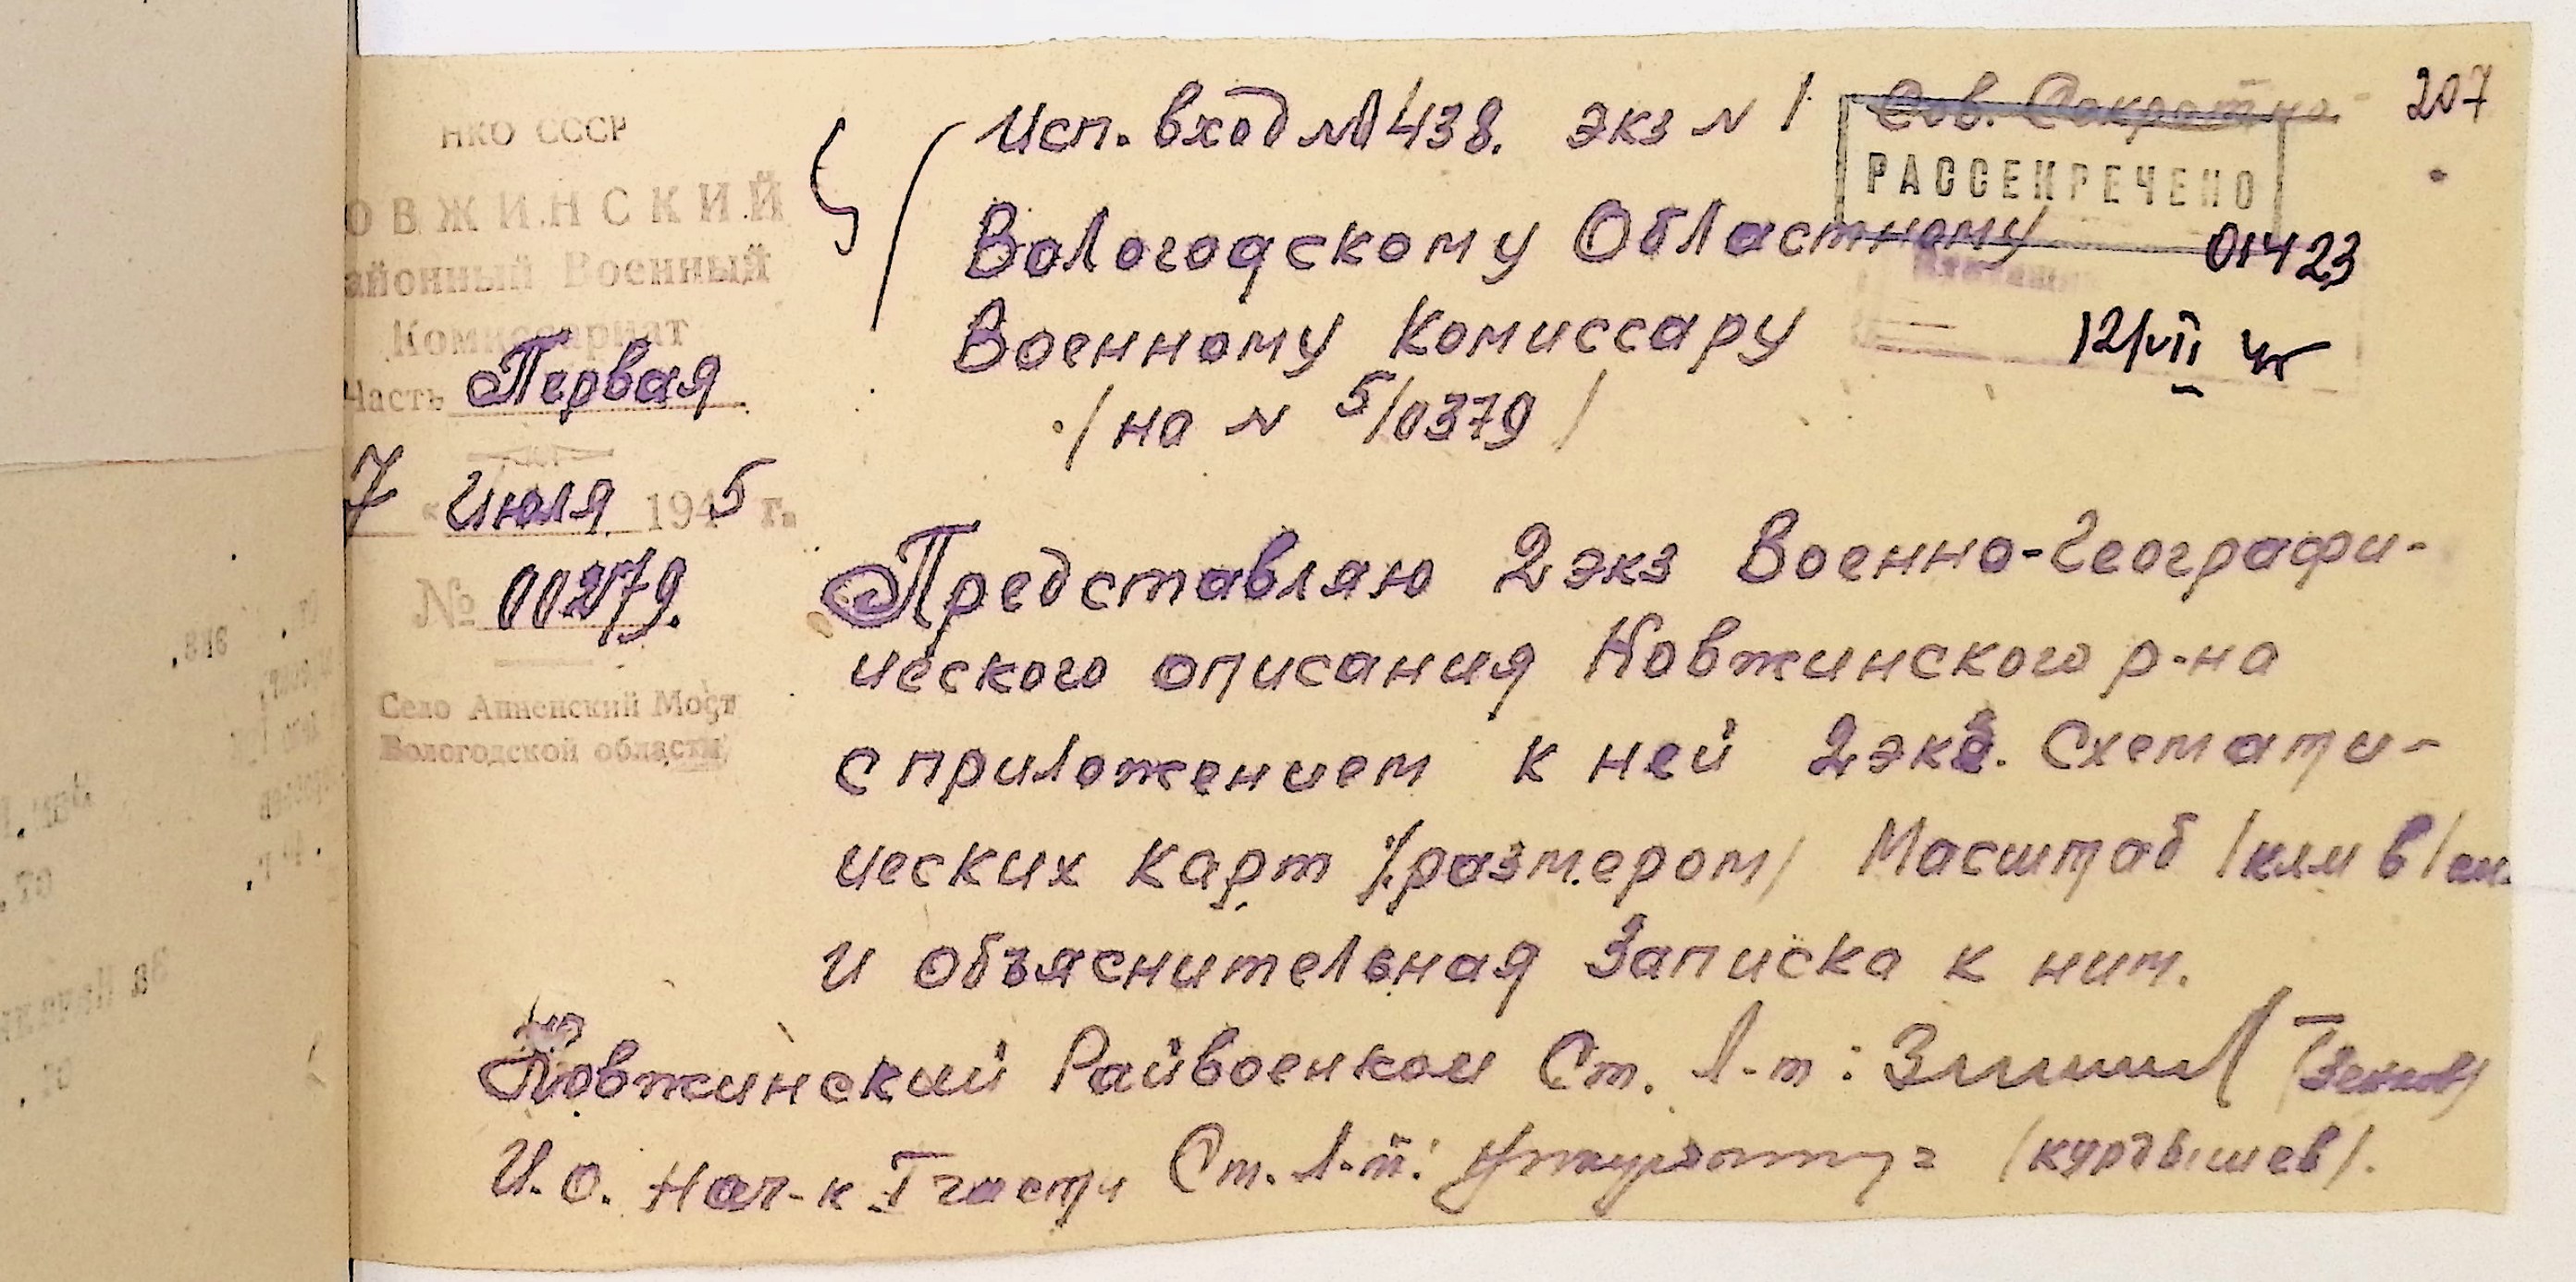 207
Исп. вход № 438. экз N 1 Сов. Секретно
РАССЕКРЕЧЕНО
НКО СССР
ОВЖИНСКИЙ
айонный Военный
Комиссариат
Часть Первая
7 « Июля 1945 г.
№ 00279.
Село Анненский Мост
Вологодской области
Вологодскому Областному
Военному Комиссару
/на N 5/0379/
01423
12/VII
Представляю 2 экз Военно-Географи-
ческого описания Ковжинского р-на
с приложением к ней 2 экз. Схемати-
ческих карт /размером/ Масштаб 1 клм в 1 см.
и объяснительная Записка к ним.
Ковжинский Райвоенком Ст. Л-т:
И.о. Нач-к I части Ст. Л-т: /Курдышев/.
экз.